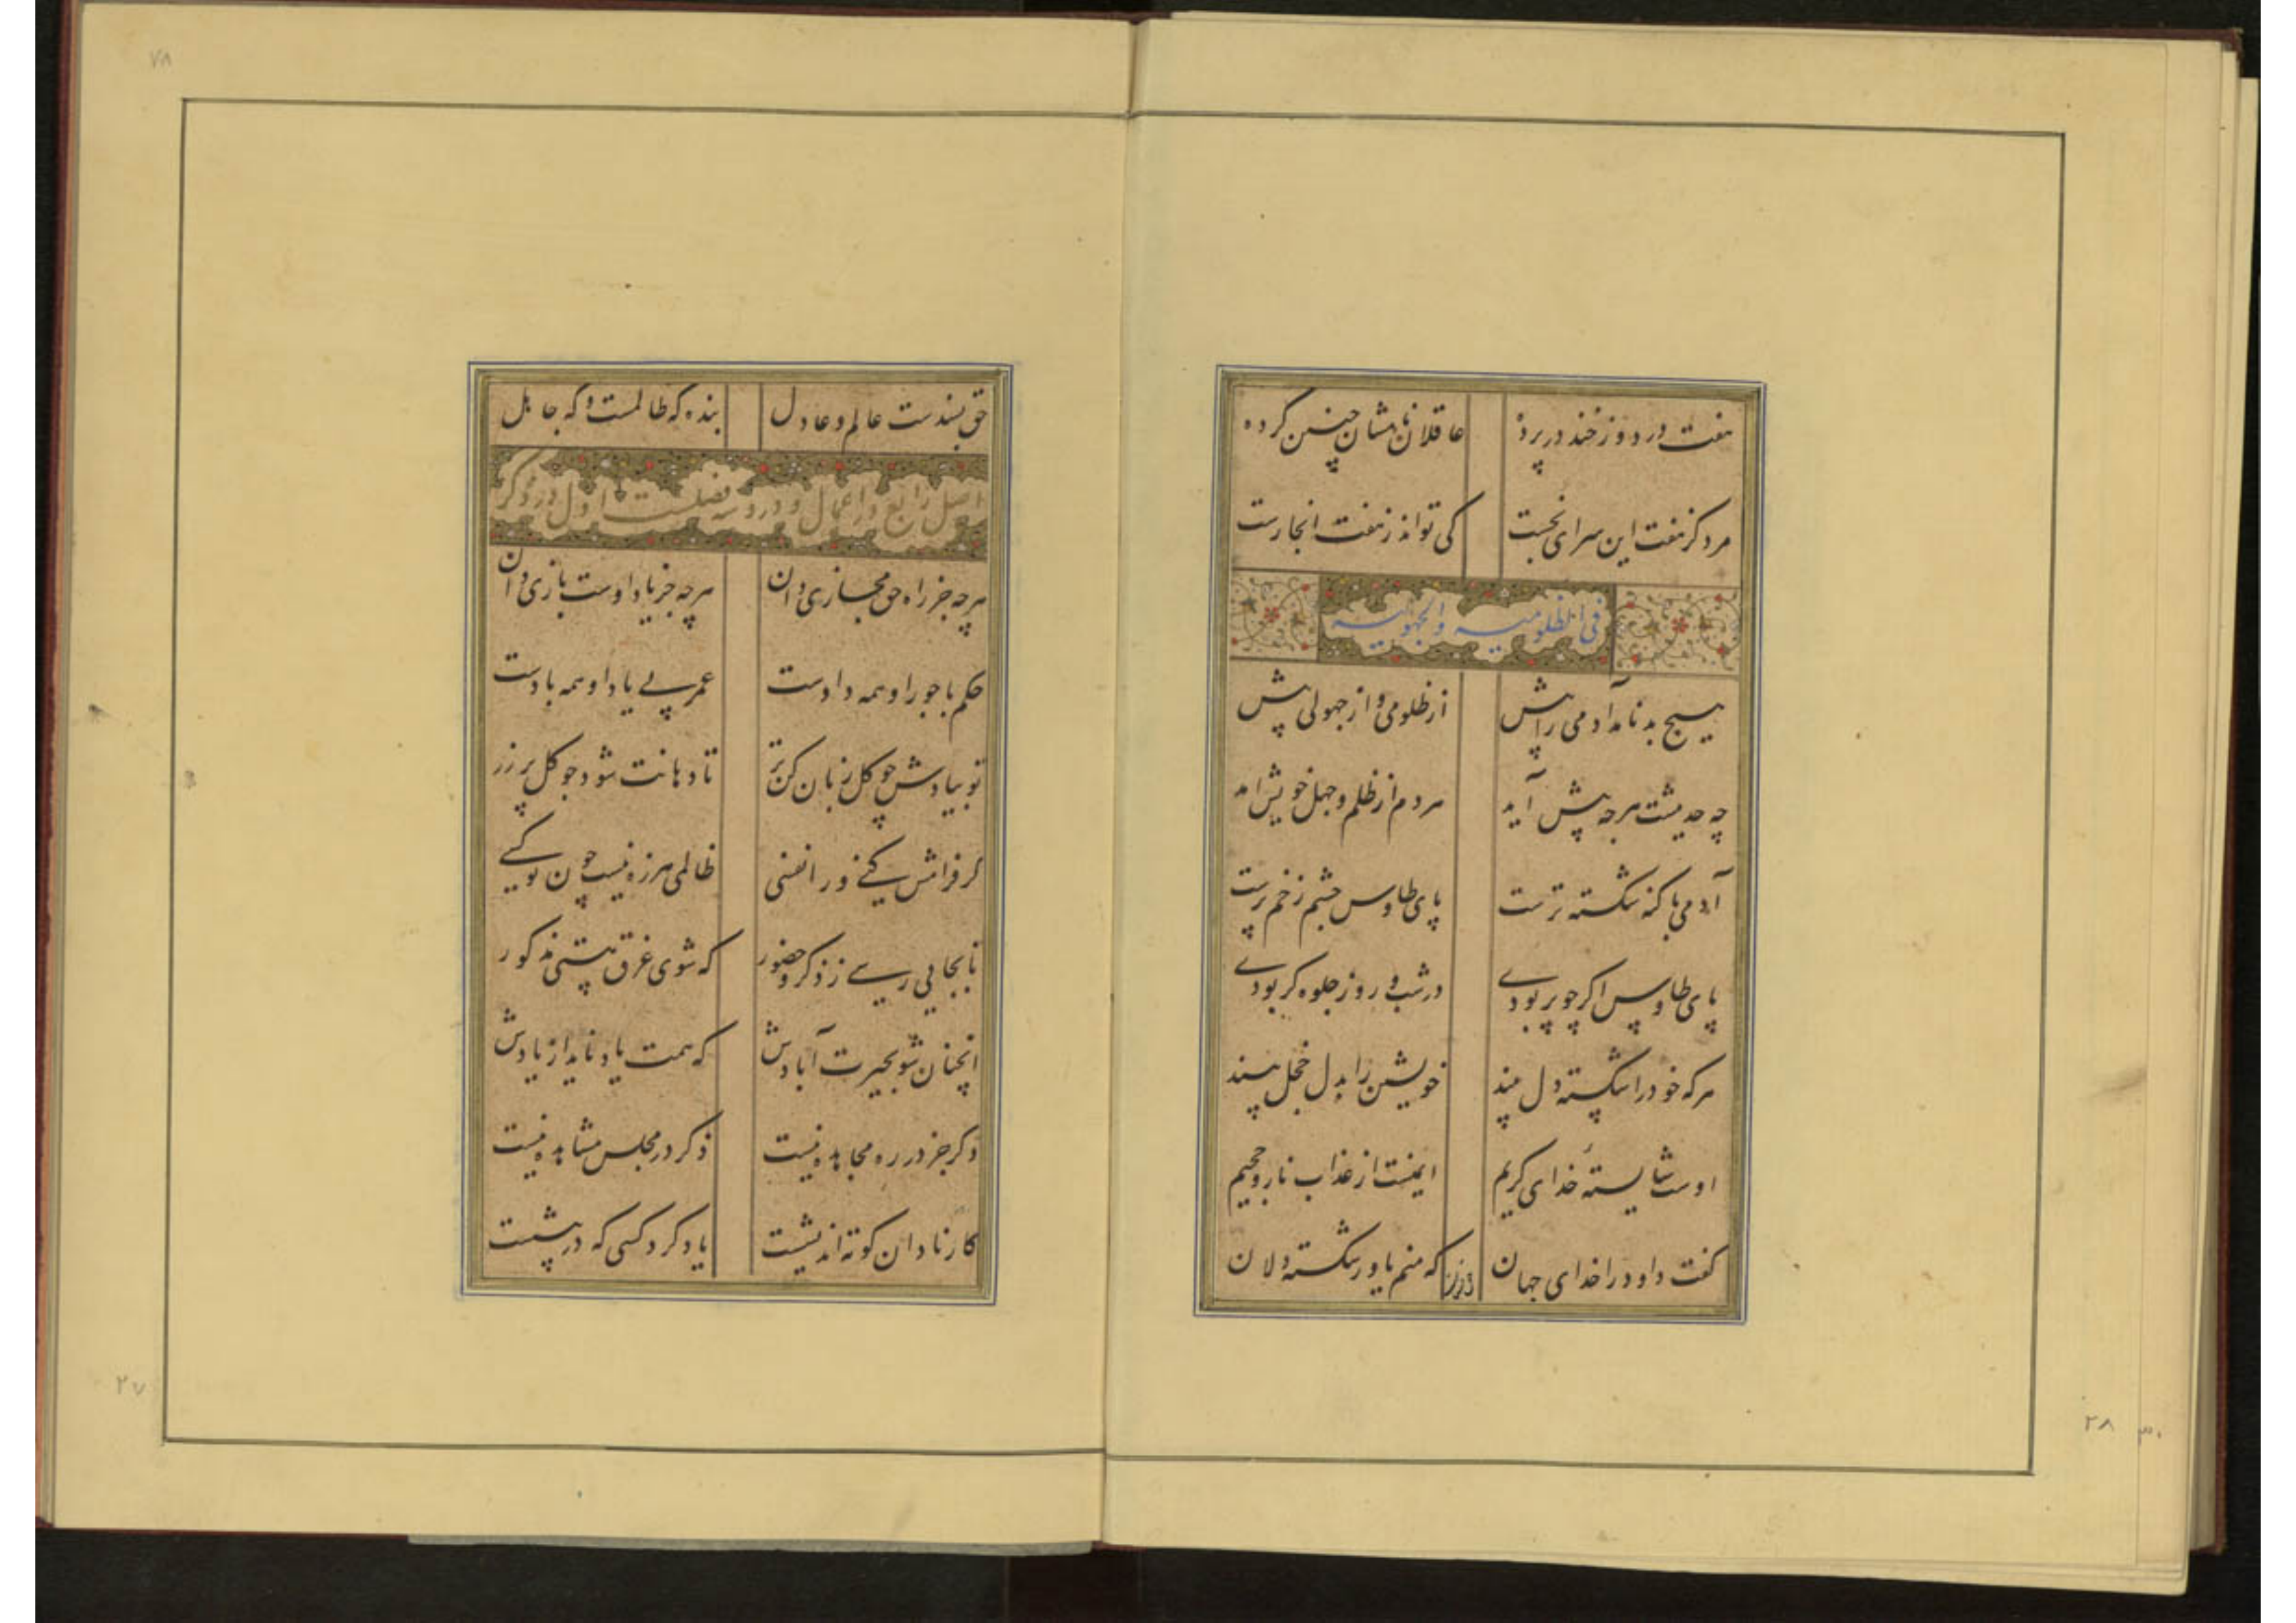 هفت در دوزخند در پرده عاقلان نامشان چنین کرده
مرد کز هفت این سرای نجست کی تواند ز هفت انجا رست
فی الظلومیه والجهولیه
هیچ بد نامد آدمی را پیش از ظلومی و از جهولی پیش
چه حدیثست هرچه پیش آید مردم از ظلم و جهل خویش آمد
آدمی با کنه شکسته ترست پای طاوس چشم زخم پرست
پای طاوس اکر چو پر بودی در شب و روز جلوه کر بودی
هرکه خود را شکسته دل بیند خویشتن را بدل خجل بیند
اوست شایسته خدای کریم ایمنست از عذاب نار و جحیم
کفت داود را خدای جهان که منم یاور شکسته دلان
حق بسندست عالم و عادل بنده که ظالمست و که جاهل
اصل رابع در اعمال و در وسه فضلست اول در ذکر
هرچه جز راه حق مجازی دان هرچه جز یاد اوست بازی دان
حکم با جور او همه دادست عمر بی یاد او همه بادست
تو بیادش چو کل زبان کن تر تا دهانت شود چو کل پر زر
کر فرامش کنی ورا نفسی ظالمی هرزه نیست چون تو کسی
تا بجایی رسی ز ذکر و حضور که شوی غرق هستی مذکور
انچنان شو بحیرت آبادش که همت یاد ناید از یادش
ذکر جز در ره مجاهده نیست ذکر در مجلس مشاهده نیست
کار نادان کوته اندیشست یاد کرد کسی که در پیشست
۷۸
۲۷
۲۸ ۳۰